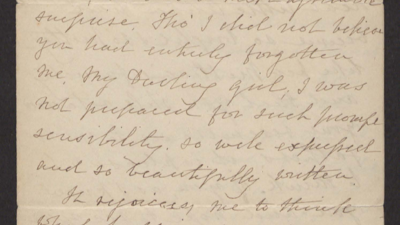 surprise. Tho' I did not believ
you had entirely forgotten
me, My Darling girl, I was
not prepared for such prompt
sensibility. so well expressed
and so beautifully written.
It rejoices me to think